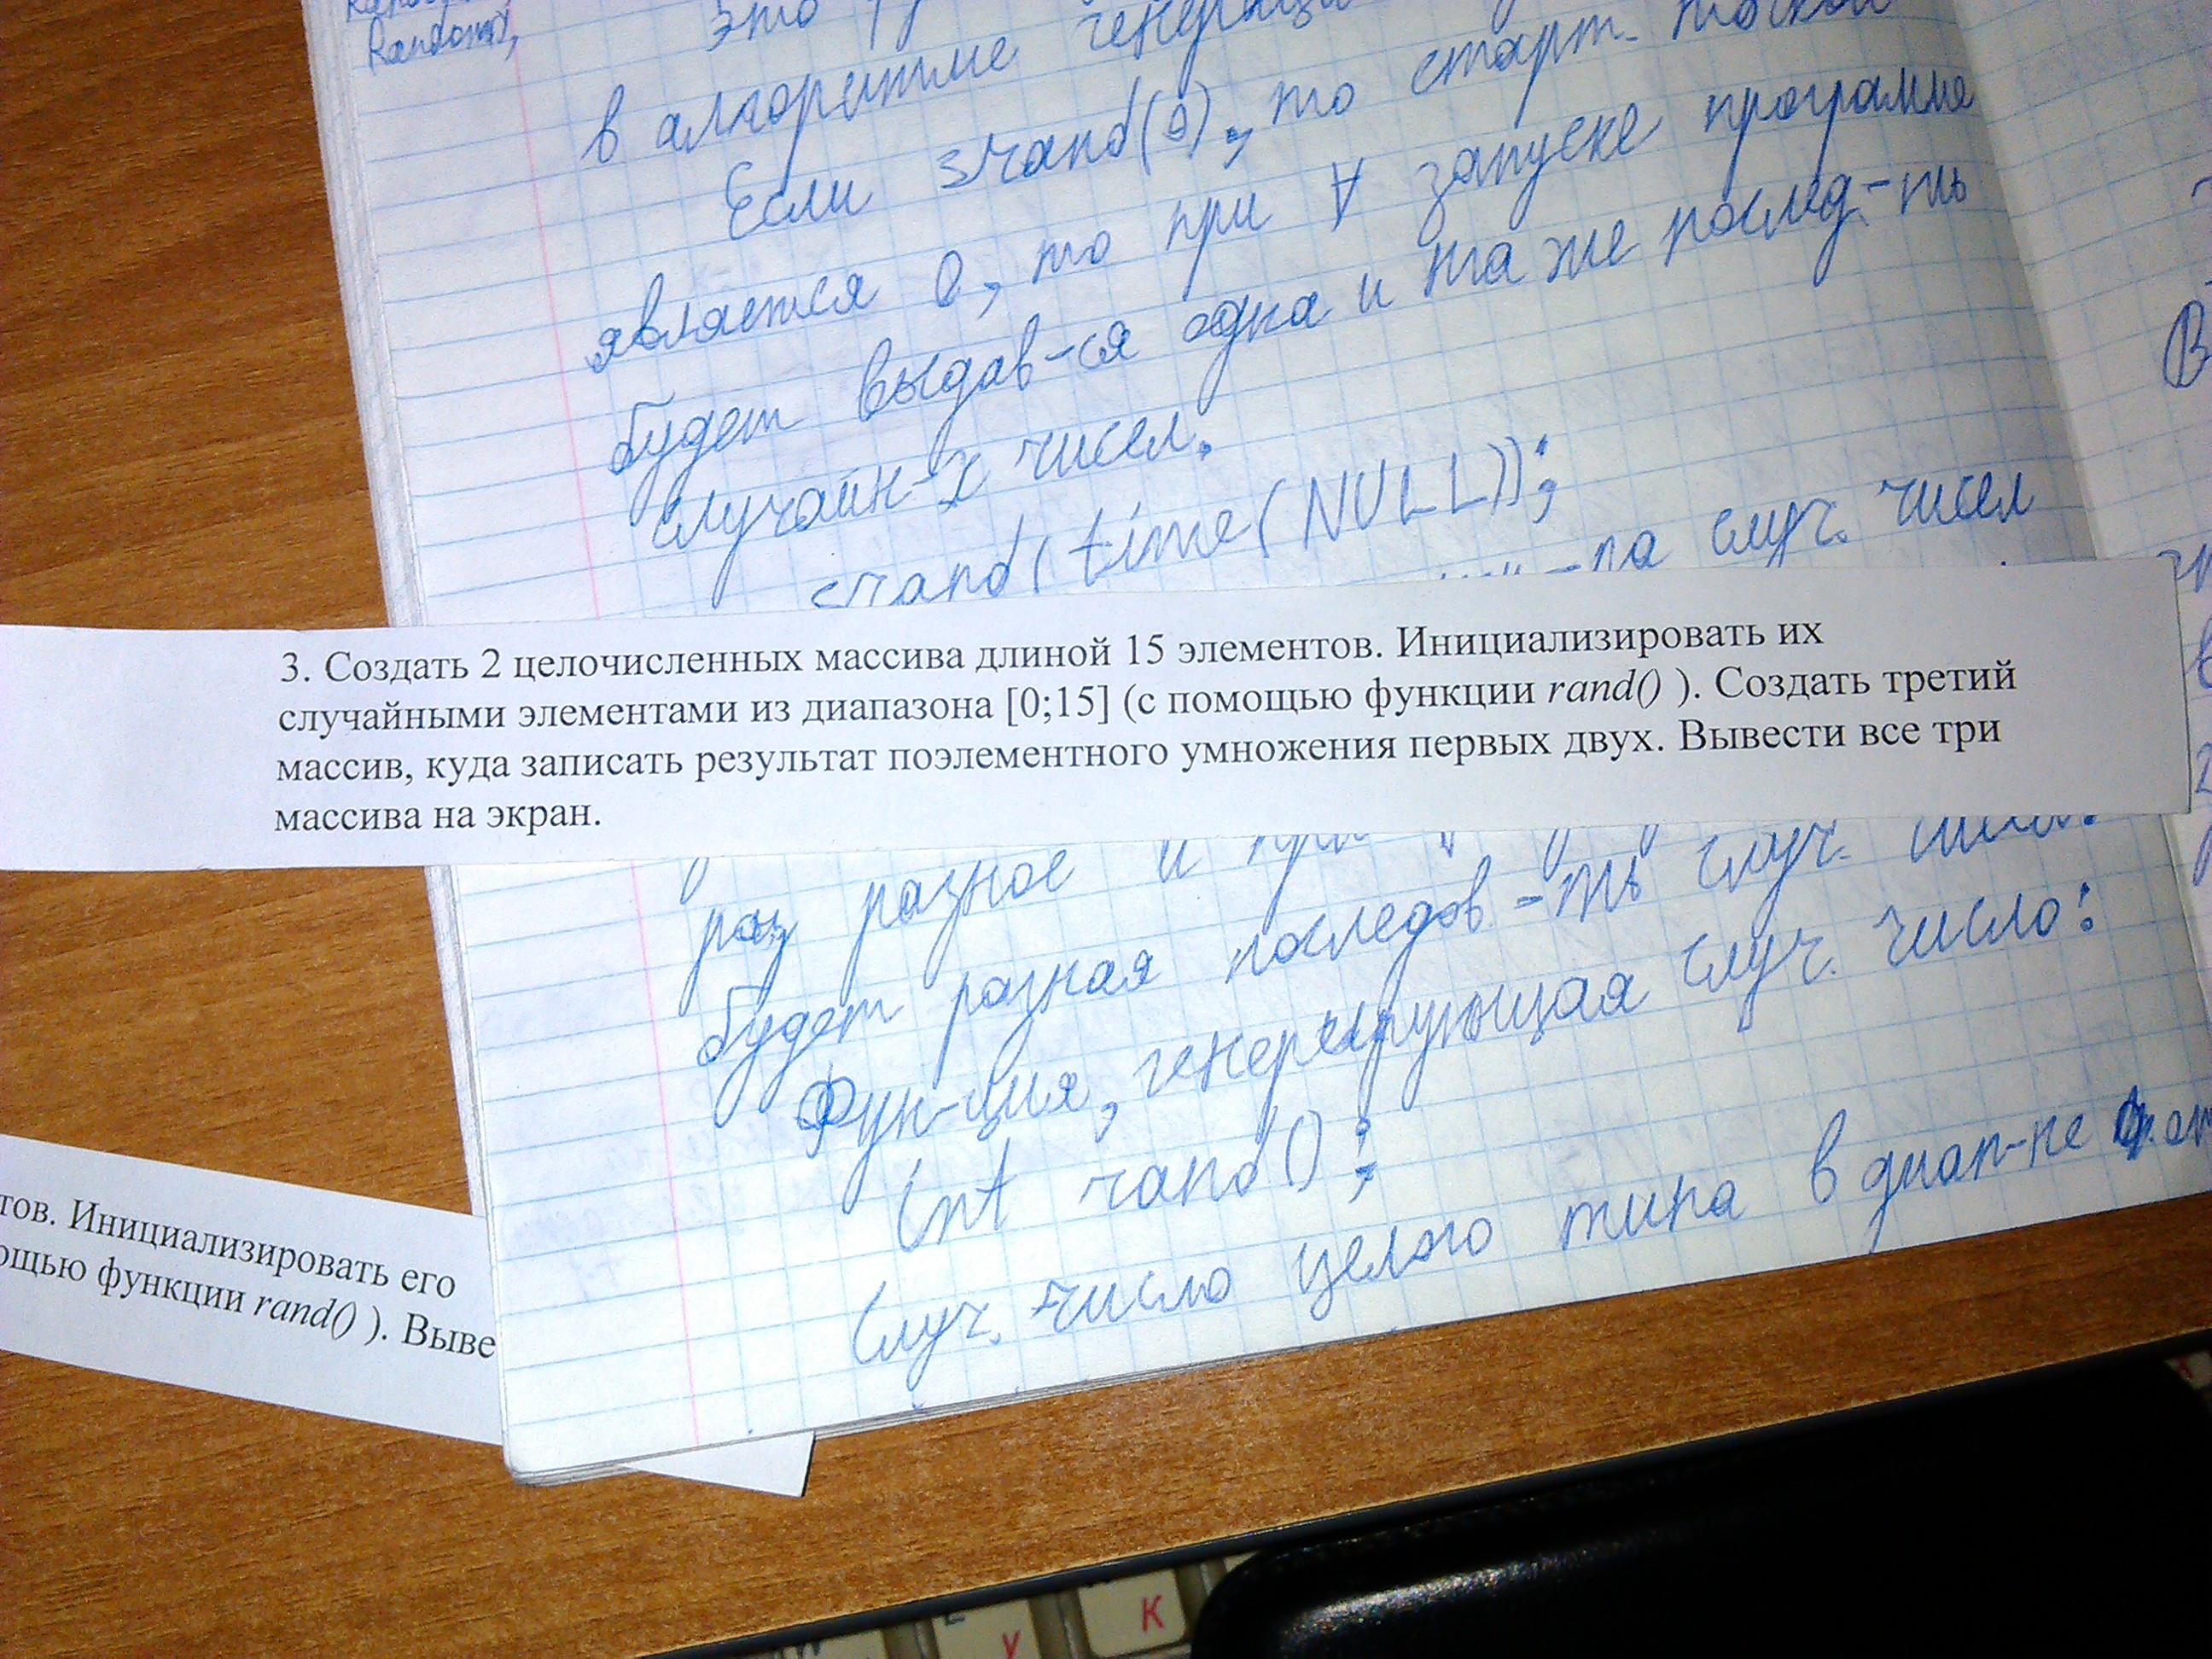 Random,
это
в алгоритме
Если srand(0), то старт. точкой
является 0, то при ∀ запуске программе
будет выдав-ся одна и та же послед-ть
случайн-х чисел.
srand(time(NULL));
случ. чисел
3. Создать 2 целочисленных массива длиной 15 элементов. Инициализировать их
случайными элементами из диапазона [0;15] (с помощью функции rand() ). Создать третий
массив, куда записать результат поэлементного умножения первых двух. Вывести все три
массива на экран.
раз разное и при
будет разная последов-ть случ. чисел.
Фун-ция, генерирующая случ. число:
int rand();
Случ. число целого типа в диап-не
тов. Инициализировать его
ощью функции rand() ). Выве
У
К